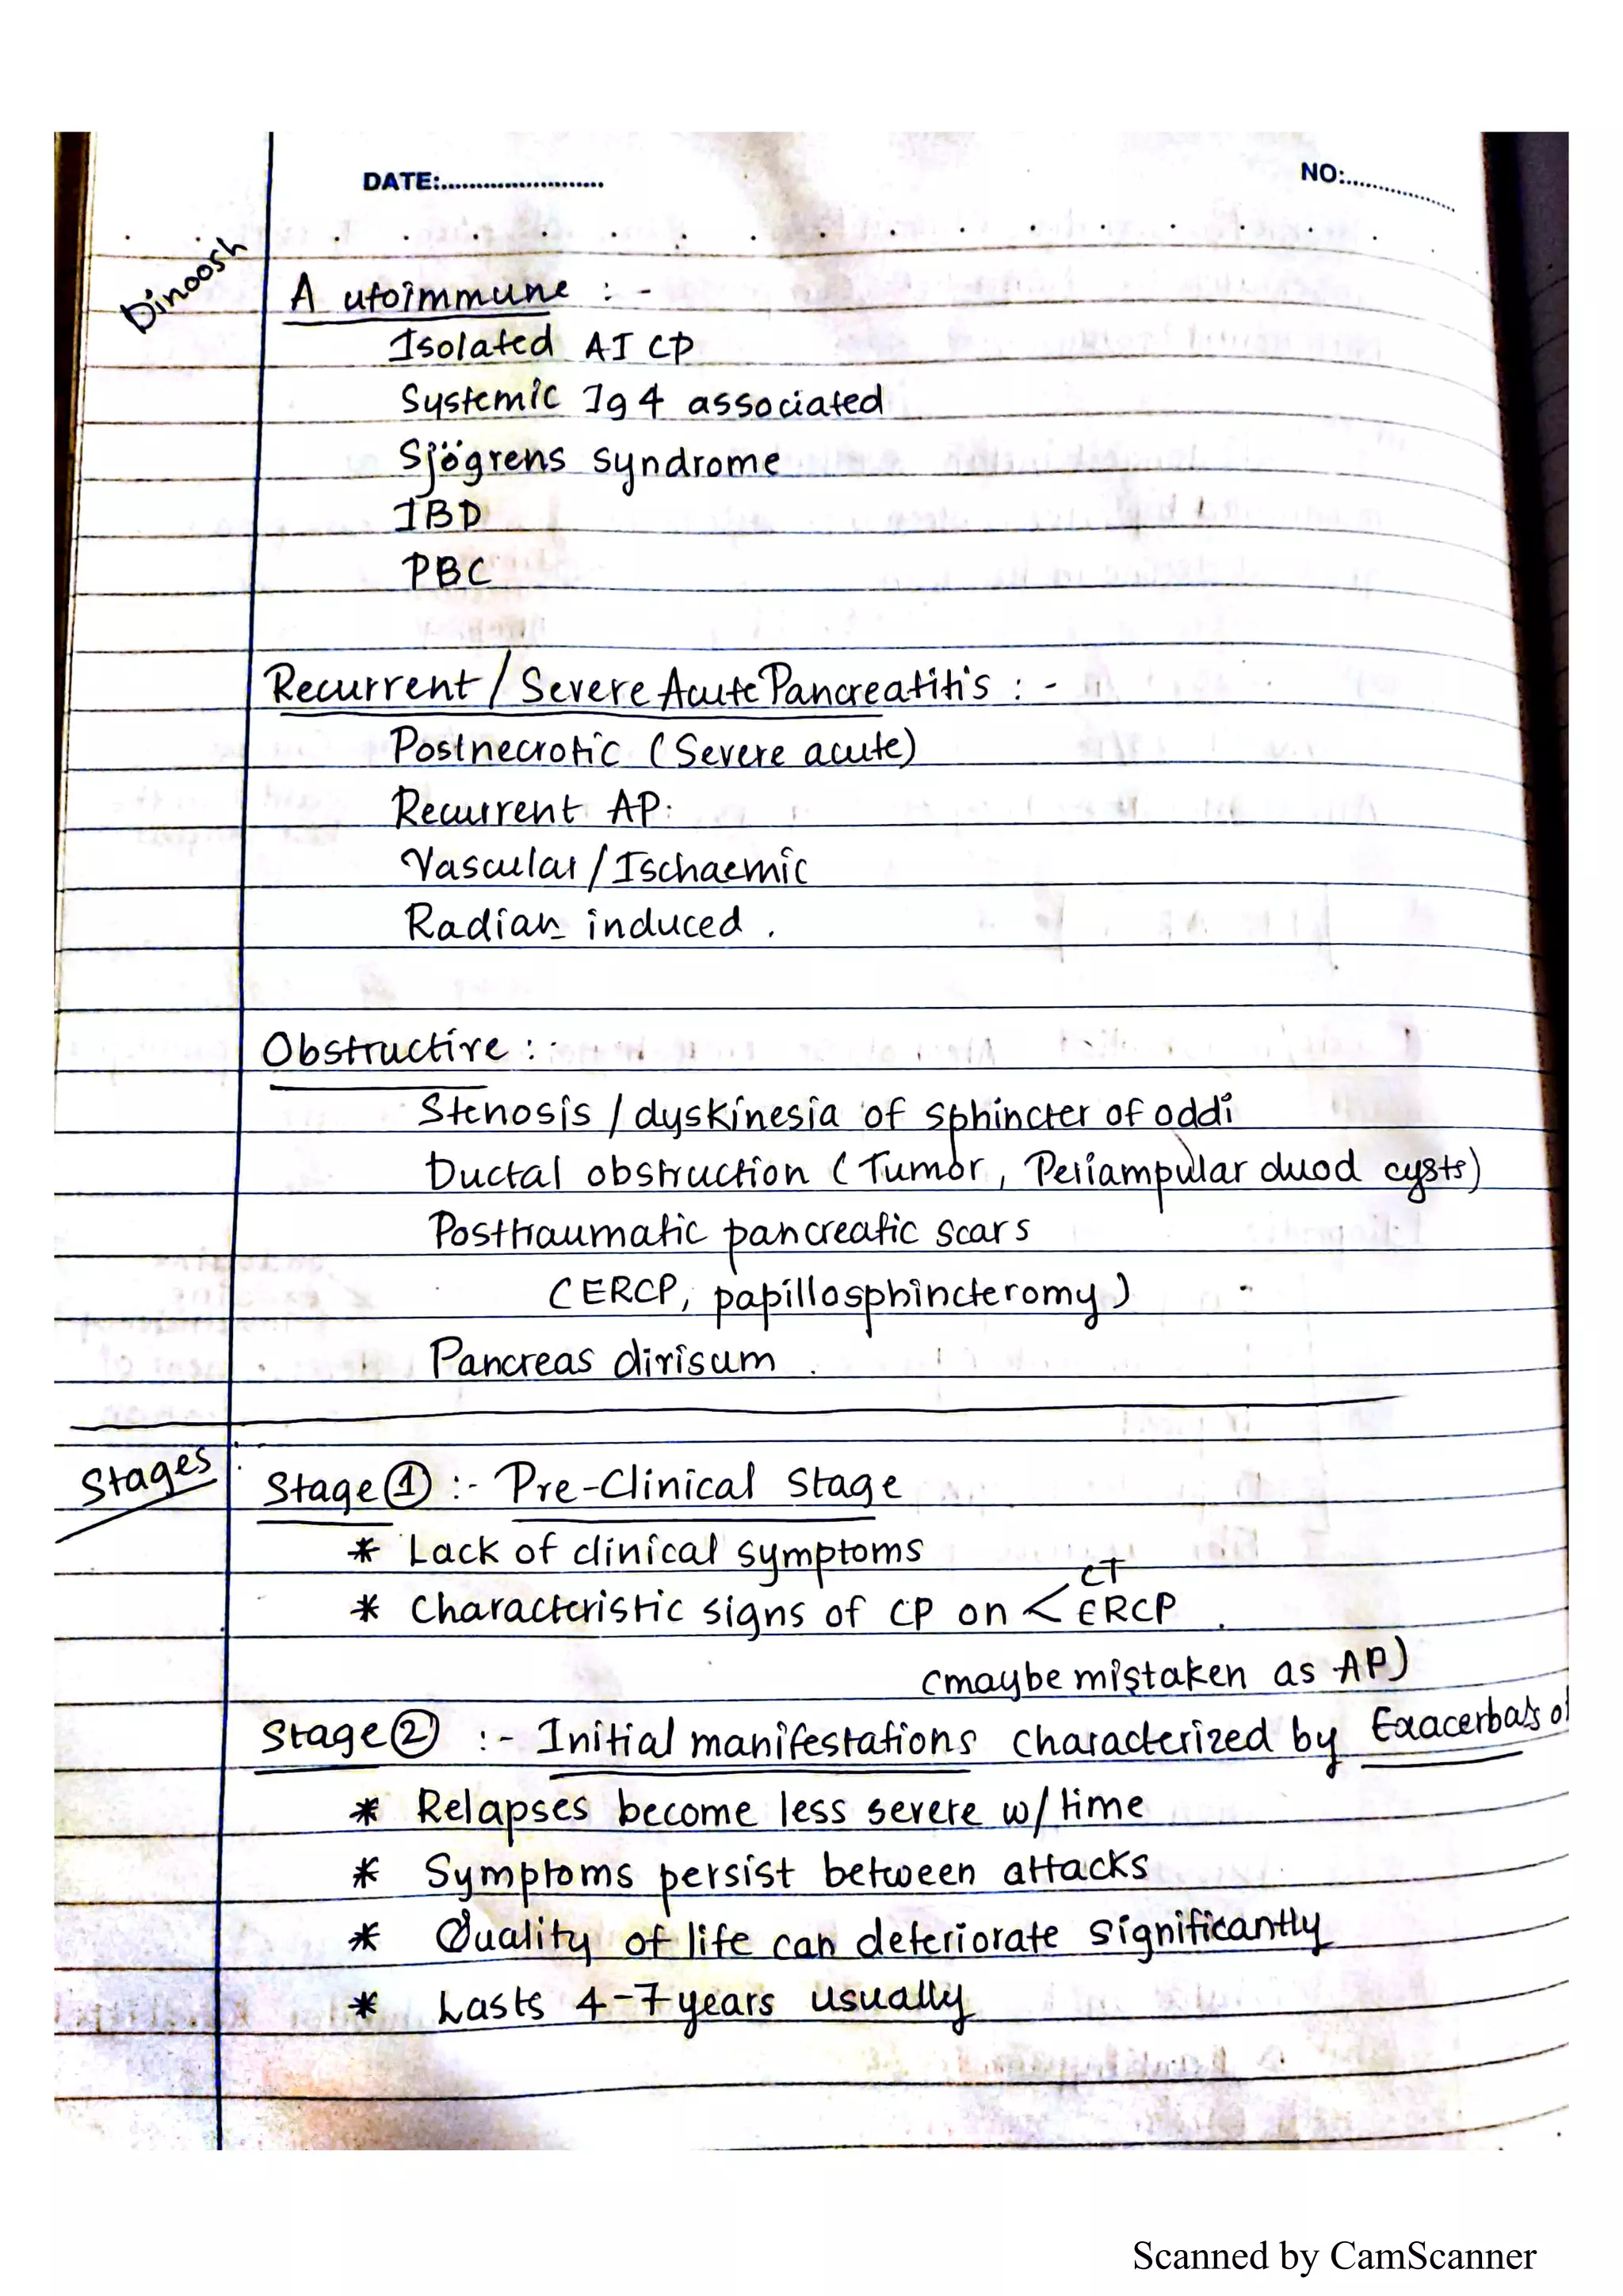 DATE:........................ NO:................
Dinoosh
Autoimmune :-
Isolated AI CP
Systemic Ig4 associated
Sjögrens syndrome
IBD
PBC
Recurrent / Severe Acute Pancreatitis :-
Postnecrotic (Severe acute)
Recurrent AP.
Vascular / Ischaemic
Radian induced .
Obstructive :-
Stenosis / dyskinesia of sphincter of oddi
Ductal obstruction (Tumor, Periampular duod cysts)
Posttraumatic pancreatic scars
(ERCP, papillosphincteromy)
Pancreas divisum .
Stages :
Stage ① :- Pre-Clinical Stage
* Lack of clinical symptoms
* Characteristic signs of CP on < CT
ERCP .
(maybe mistaken as AP)
Stage ② :- Initial manifestations characterized by
* Relapses become less severe w/ time
* Symptoms persist between attacks
* Quality of life can deteriorate significantly
* Lasts 4-7 years usually
Scanned by CamScanner